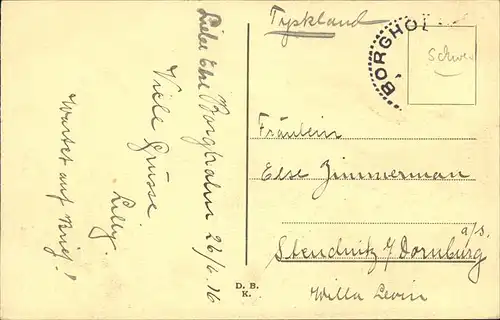 Liebe Else Borgholm 26/6. 16
Viele Grüsse
Lilly.
Wartet auf Brief!
Tyskland
BORGHOL
Schwe
Fräulein
Else Zimmerman
a/S.
Steudnitz b/ Dornburg
Willa Levin
D. B.
K.